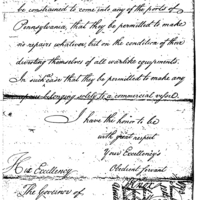 be constrained to come into any of the ports of
Pennsylvania, that they be permitted to make
no repairs whatever, but on the condition of their
divesting themselves of all warlike equipments.
In such case that they be permitted to make any
belonging solely to a commercial vessel
I have the honor to be
with great respect
Your Excellency's
Obedient servant
His Excellency
The Governor of